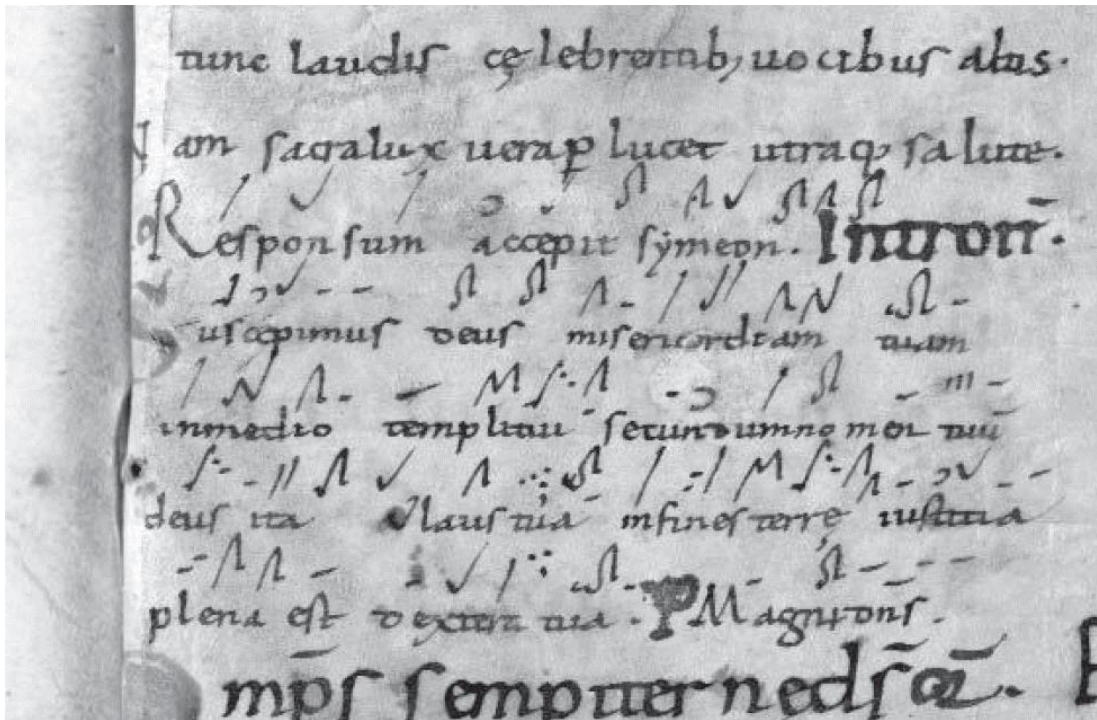 tunc laudis cęlebrentur uocibus altis.
Iam sacra lux uera ꝑlucet utraq; salute.
Responsum accepit symeon. Introiī.
uscepimus deus misericordiam tuam
inmedio templi tui secundum nomen tuū
deus ita & laus tua infines terrę iustitia
plena est dextera tua. P Magnus dn̄s.
mp̄s sempiterne ds̄